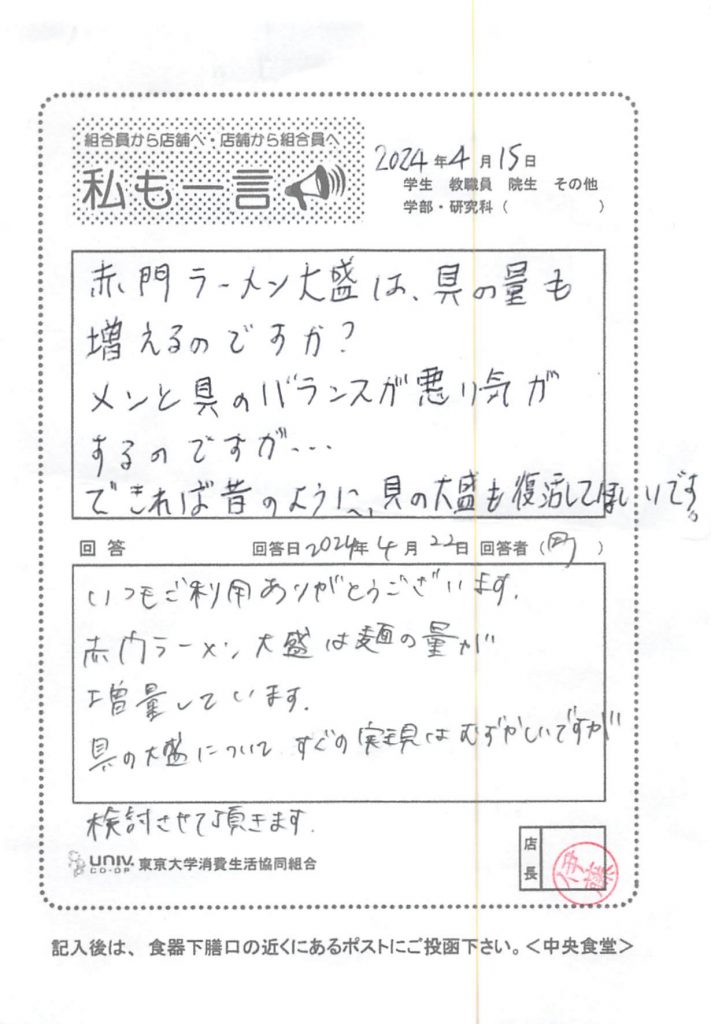 組合員から店舗へ・店舗から組合員へ
私も一言
2024年4月15日
学生 教職員 院生 その他
学部・研究科( )
赤門ラーメン大盛は、具の量も
増えるのですか?
メンと具のバランスが悪い気が
するのですが…
できれば昔のように、具の大盛も復活してほしいです。
回答 回答日2024年4月22日 回答者( )
いつもご利用ありがとうございます.
赤門ラーメン大盛は麺の量が
増量しています.
具の大盛について すぐの実現はむずかしいですが
検討させて頂きます.
UNIV. CO-OP 東京大学消費生活協同組合
店長
伊藤
記入後は、食器下膳口の近くにあるポストにご投函下さい。<中央食堂>